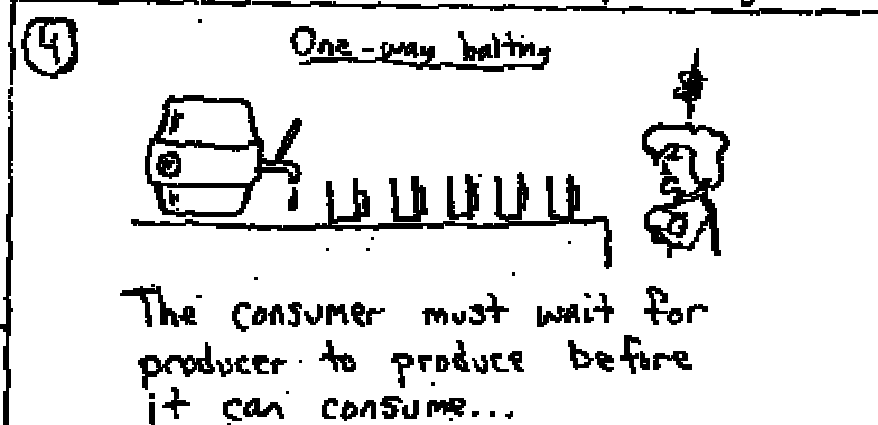 4
One-way balting
The consumer must wait for
producer to produce before
it can consume...